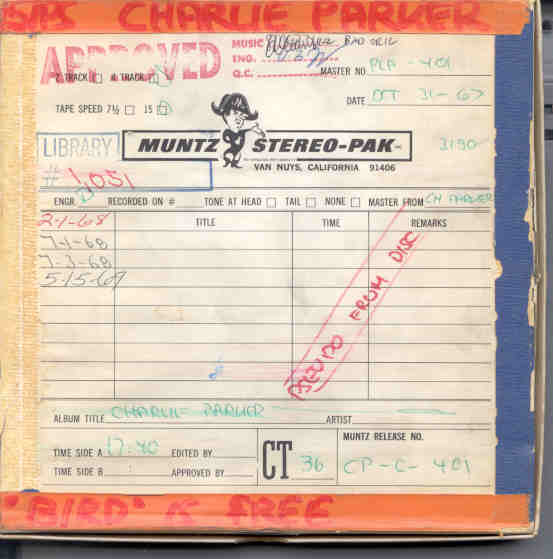 CHARLIE PARKER
APPROVED
MUSIC BAD ORIG
ENG.
2 TRACK 4 TRACK
Q.C. MASTER NO. PLA - 401
TAPE SPEED 7½ 15
DATE OCT 31-67
LIBRARY
MUNTZ STEREO-PAK INC
3190
VAN NUYS, CALIFORNIA 91406
1051
ENGR. RECORDED ON # TONE AT HEAD TAIL NONE MASTER FROM CH PARKER
2-1-68 TITLE TIME REMARKS
7-1-68
7-3-68
5-15-69
PSEUDO FROM DISC
ALBUM TITLE CHARLIE PARKER ARTIST
TIME SIDE A 17:40 EDITED BY
TIME SIDE B APPROVED BY
CT 36
MUNTZ RELEASE NO.
CP-C- 401
"BIRD" IS FREE